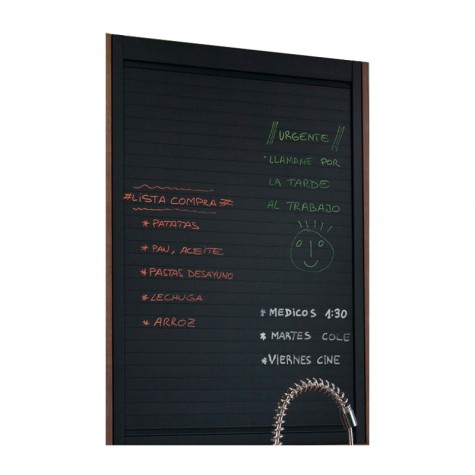 #LISTA COMPRA#
* PATATAS
* PAN, ACEITE
* PASTAS DESAYUNO
* LECHUGA
* ARROZ
// URGENTE //
LLAMAME POR
LA TARDE
AL TRABAJO
* MEDICOS 1:30
* MARTES COLE
* VIERNES CINE